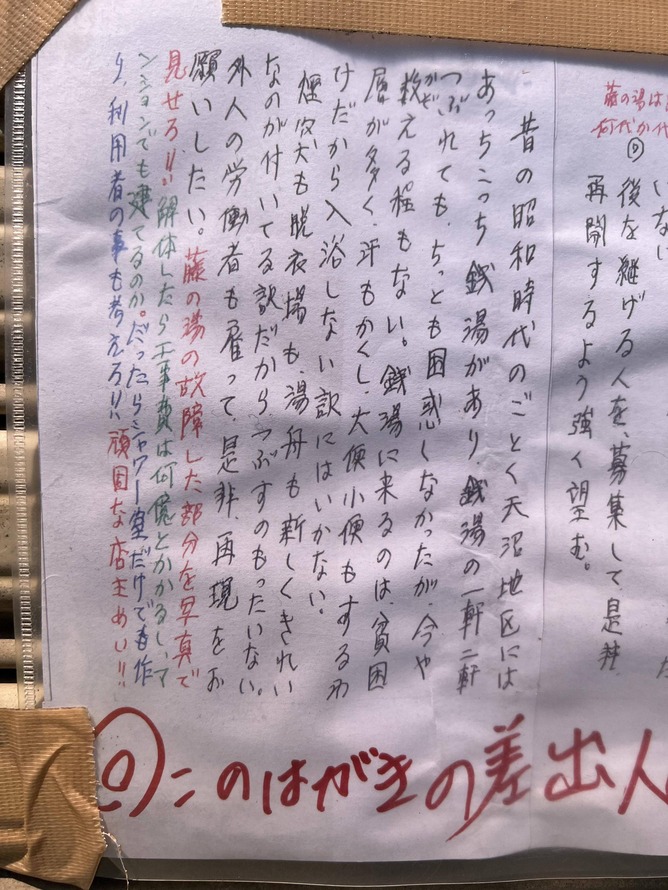 藤の湯は
何代か代
⑨
いない
後を継げる人を、募集して、是非、
再開するよう強く望む。
昔の昭和時代のごとく天沼地区には
あっちこっち銭湯があり、銭湯の一軒二軒
つぶれても、ちっとも困惑しなかったが、今や
かぞ
数える程もない。銭湯に来るのは、貧困
層が多く、汗もかくし、大便小便もするわ
けだから入浴しない訳にはいかない。
煙突も脱衣場も、湯舟も新しくきれい
なのが付いてる訳だから、つぶすのもったいない。
外人の労働者も雇って、是非、再現をお
願いしたい。藤の湯の故障した部分を写真で
見せろ!!解体したら工事費は何億とかかるし、マ
ンションでも建てるのか。だったらシャワー室だけでも作
り、利用者の事も考えろ!!頑固な店主めい!!
このはがきの差出人